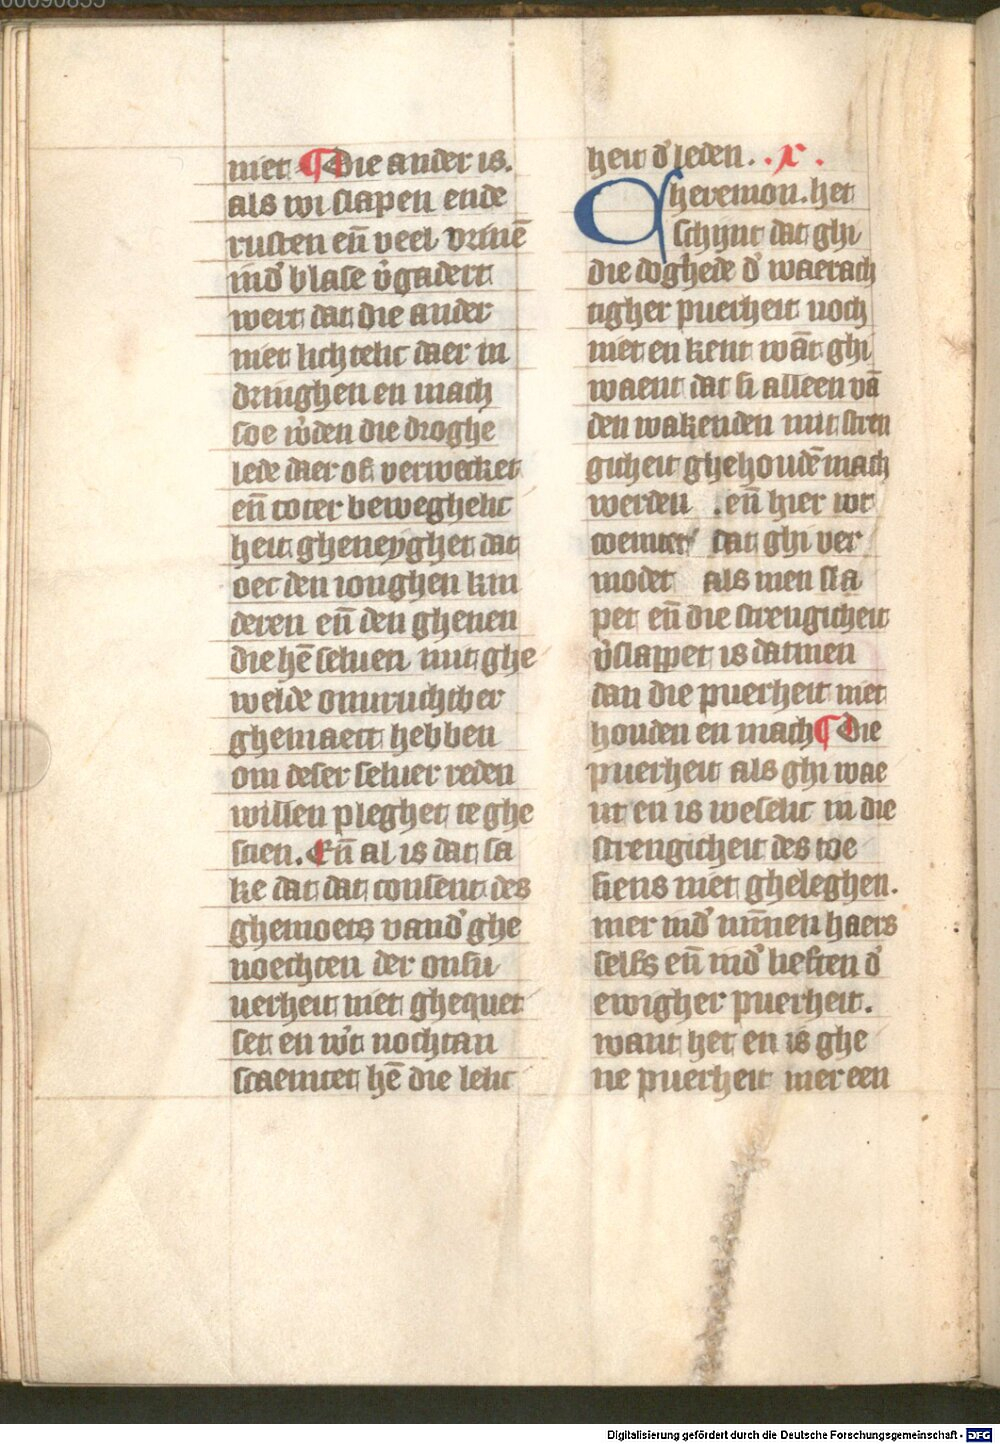 niet ¶ Die ander is.
als wi slapen ende
rusten en̄ veel vrinē
ind' blase v'gadert
wert dat die ander
niet lichtelic daer in
dringhen en mach
soe w'den die droghe
lede daer of verwecket
en̄ toter beweghelic
heit gheneyghet dat
oec den ionghen kin
deren en̄ den ghenen
die hē seluen mit ghe
welde onvruchtber
ghemaect hebben
om deser seluer reden
willen pleghet te ghe
scien. En̄ al is dat sa
ke dat dat consent des
ghemoets vand' ghe
noechten der onsu
uerheit niet ghequet
set en w't nochtan
scaemtet hē die lelic
heit d' leden. .x.
Cheremon. het
schijnt dat ghi
die doghede d' waerach
tigher puerheit noch
niet en kent wāt ghi
waent dat si alleen vā
den wakenden mit stren
gicheit ghehoudē mach
werden . en̄ hier wt
coemtet dat ghi ver
modet als men sla
pet en̄ die strengicheit
v'slappet is datmen
dan die puerheit niet
houden en mach ¶ Die
puerheit als ghi wae
nt en is weselic in die
strengicheit des toe
siens niet gheleghen.
mer ind' minnen haers
selfs en̄ ind' lieften d'
ewigher puerheit.
want het en is ghe
ne puerheit mer een
Digitalisierung gefördert durch die Deutsche Forschungsgemeinschaft - DFG